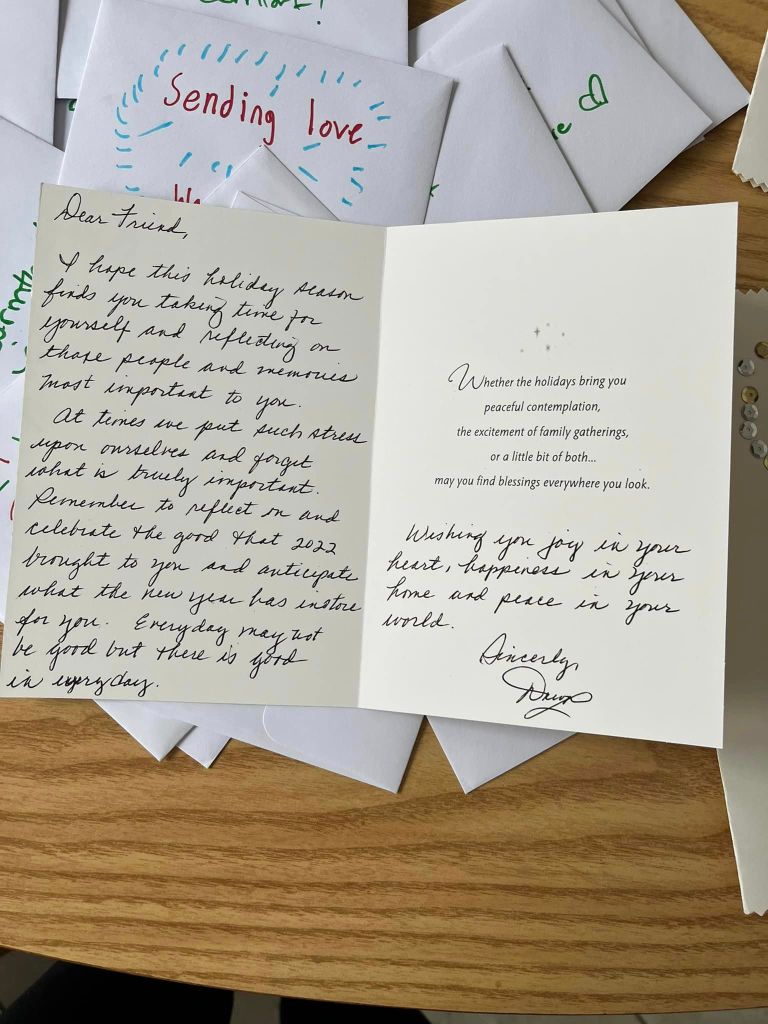 Sending love
Dear Friend,
I hope this holiday season
finds you taking time for
yourself and reflecting on
those people and memories
most important to you.
At times we put such stress
upon ourselves and forget
what is truely important.
Remember to reflect on and
celebrate the good that 2022
brought to you and anticipate
what the new year has instore
for you. Everyday may not
be good but there is good
in everyday.
Whether the holidays bring you
peaceful contemplation,
the excitement of family gatherings,
or a little bit of both...
may you find blessings everywhere you look.
Wishing you joy in your
heart, happiness in your
home and peace in your
world.
Sincerly,
Dawn